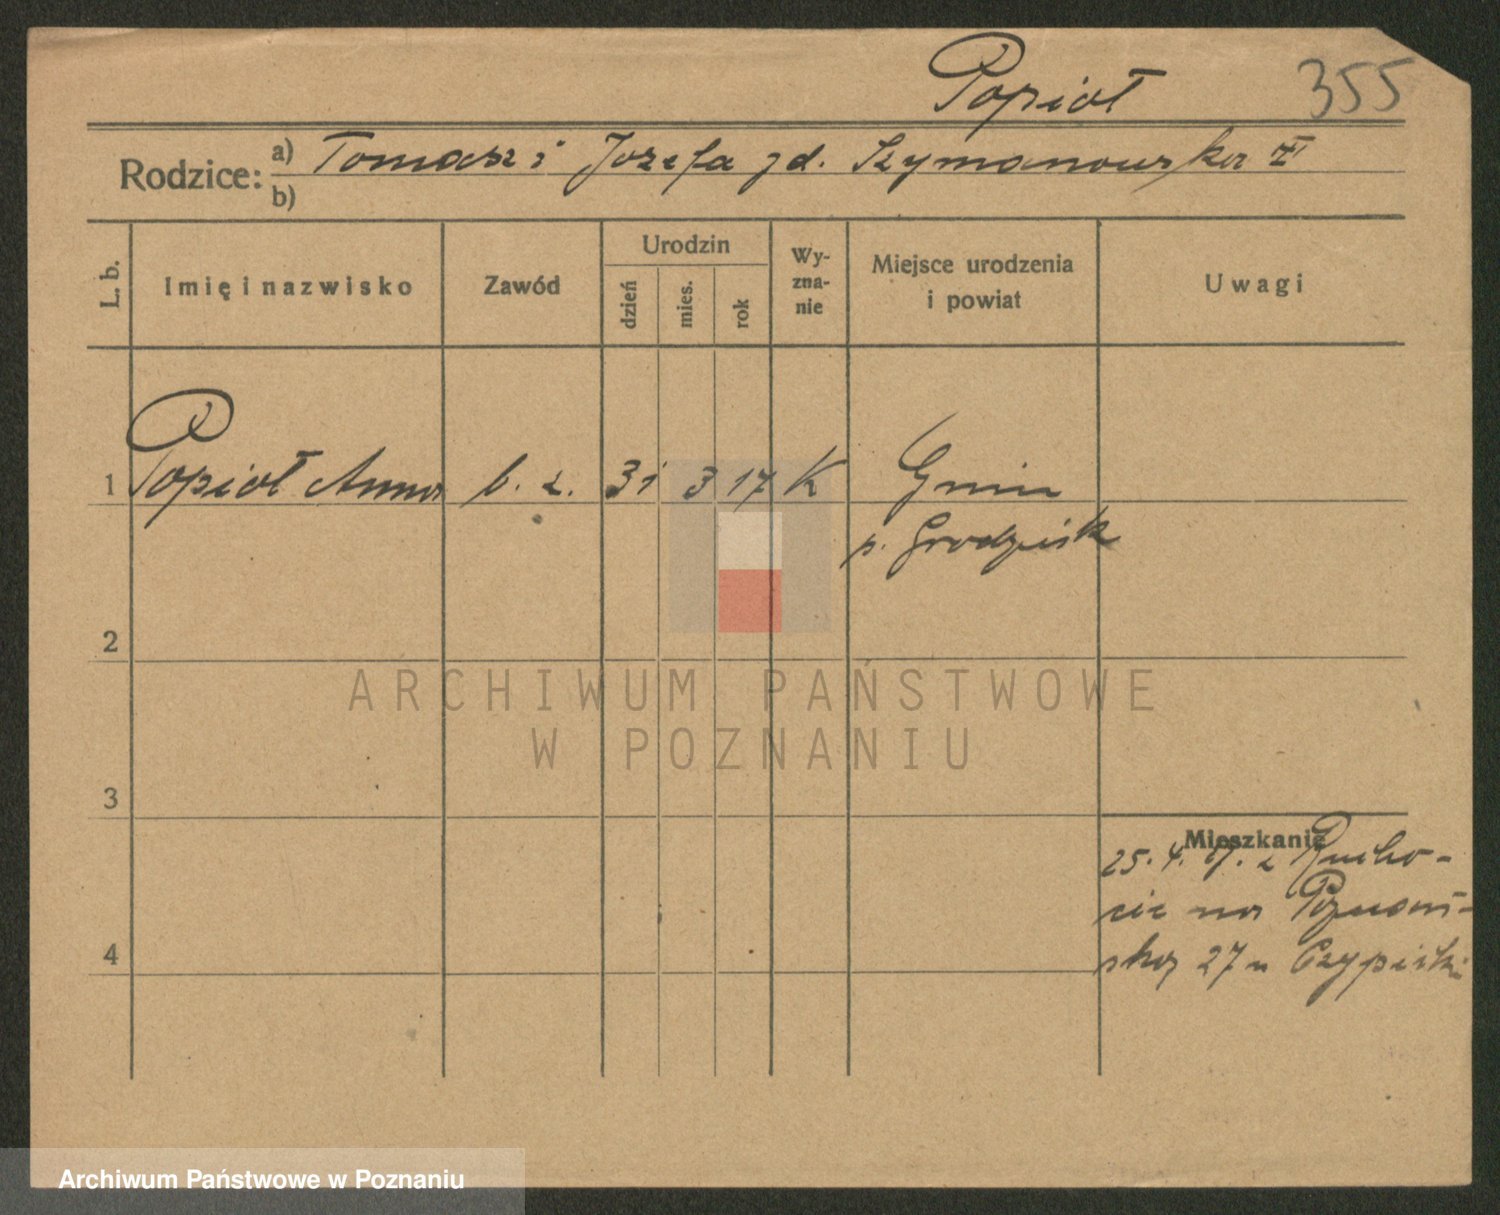 Popioł 355
Rodzice: a) Tomasz i Józefa zd. Szymanowska
b)
L. b. Imię i nazwisko Zawód Urodzin dzień mies. rok Wyznanie Miejsce urodzenia i powiat Uwagi
1 Popioł Anna b. z. 31 3 17 K Gnin
p. Grodzisk
2
ARCHIWUM PAŃSTWOWE
W POZNANIU
3
Mieszkanie
25. 4. z Rucho-
cic na Poznań-
ską 27 u Czypicki
4
Archiwum Państwowe w Poznaniu